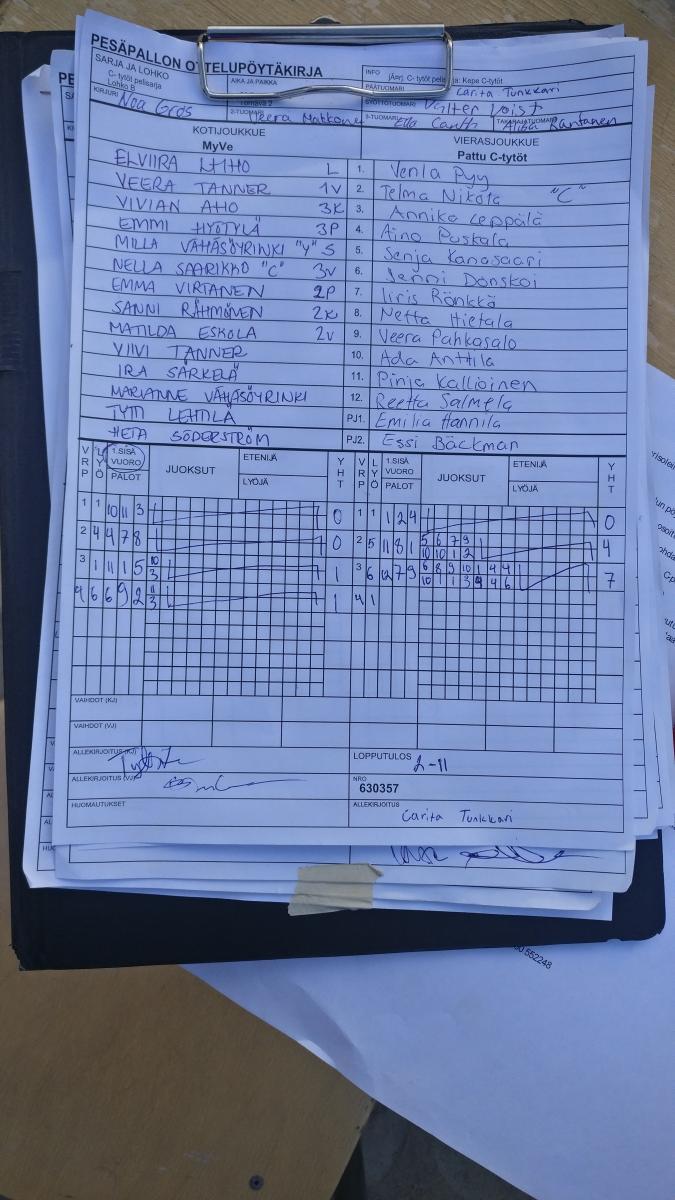 PESÄPALLON OTTELUPÖYTÄKIRJA
SARJA JA LOHKO
C- tytöt pelisarja
Lohko B
AIKA JA PAIKKA
INFO
KIRJURI Noa Gros
Veera Matkone
PÄÄTUOMARI Carita Tunkkari
SYÖTTÖTUOMARI Valter
TAKARAJATUOMARI Rantanen
KOTIJOUKKUE
MyVe
VIERASJOUKKUE
Pattu C-tytöt
ELVIIRA L 1. Venla Pyy
VEERA TANNER 1V 2. Telma Nikola "C"
VIVIAN AHO 3K 3. Annika Leppälä
EMMI HYÖTYLÄ 3P 4. Aino Puskala
MILLA VÄHÄSÖYRINKI "Y" S 5. Senja Kanasaari
NELLA SAARIKKO "C" 3V 6. Jenni Donskoi
EMMA VIRTANEN 2P 7. Iiris Rönkkä
SANNI 2K 8. Netta Hietala
MATILDA ESKOLA 2V 9. Veera Pahkasalo
VIIVI TANNER 10. Ada Anttila
IRA SÄRKELÄ 11. Pinja Kallioinen
MARIANNE VÄHÄSÖYRINKI 12. Reetta Salmela
TYTTI LEHTILÄ PJ1. Emilia Hannila
HETA SÖDERSTRÖM PJ2. Essi Bäckman
VRP LYÖ 1.SISÄ VUORO PALOT JUOKSUT ETENIJÄ LYÖJÄ YHT VRP LYÖ 1.SISÄ VUORO PALOT JUOKSUT ETENIJÄ LYÖJÄ YHT
1 1 10 11 3 0 1 1 1 2 4 0
2 4 4 7 8 0 2 5 11 8 1 5 6 7 9 4
10 10 1 2
3 1 1 11 5 10 1 3 6 12 7 9 6 8 9 10 1 4 4 7
3
4 6 6 9 2 11 1 4 1
3
VAIHDOT (KJ)
VAIHDOT (VJ)
ALLEKIRJOITUS (KJ)
LOPPUTULOS 2-11
ALLEKIRJOITUS (VJ)
NRO
630357
HUOMAUTUKSET
ALLEKIRJOITUS
Carita Tunkkari
552248